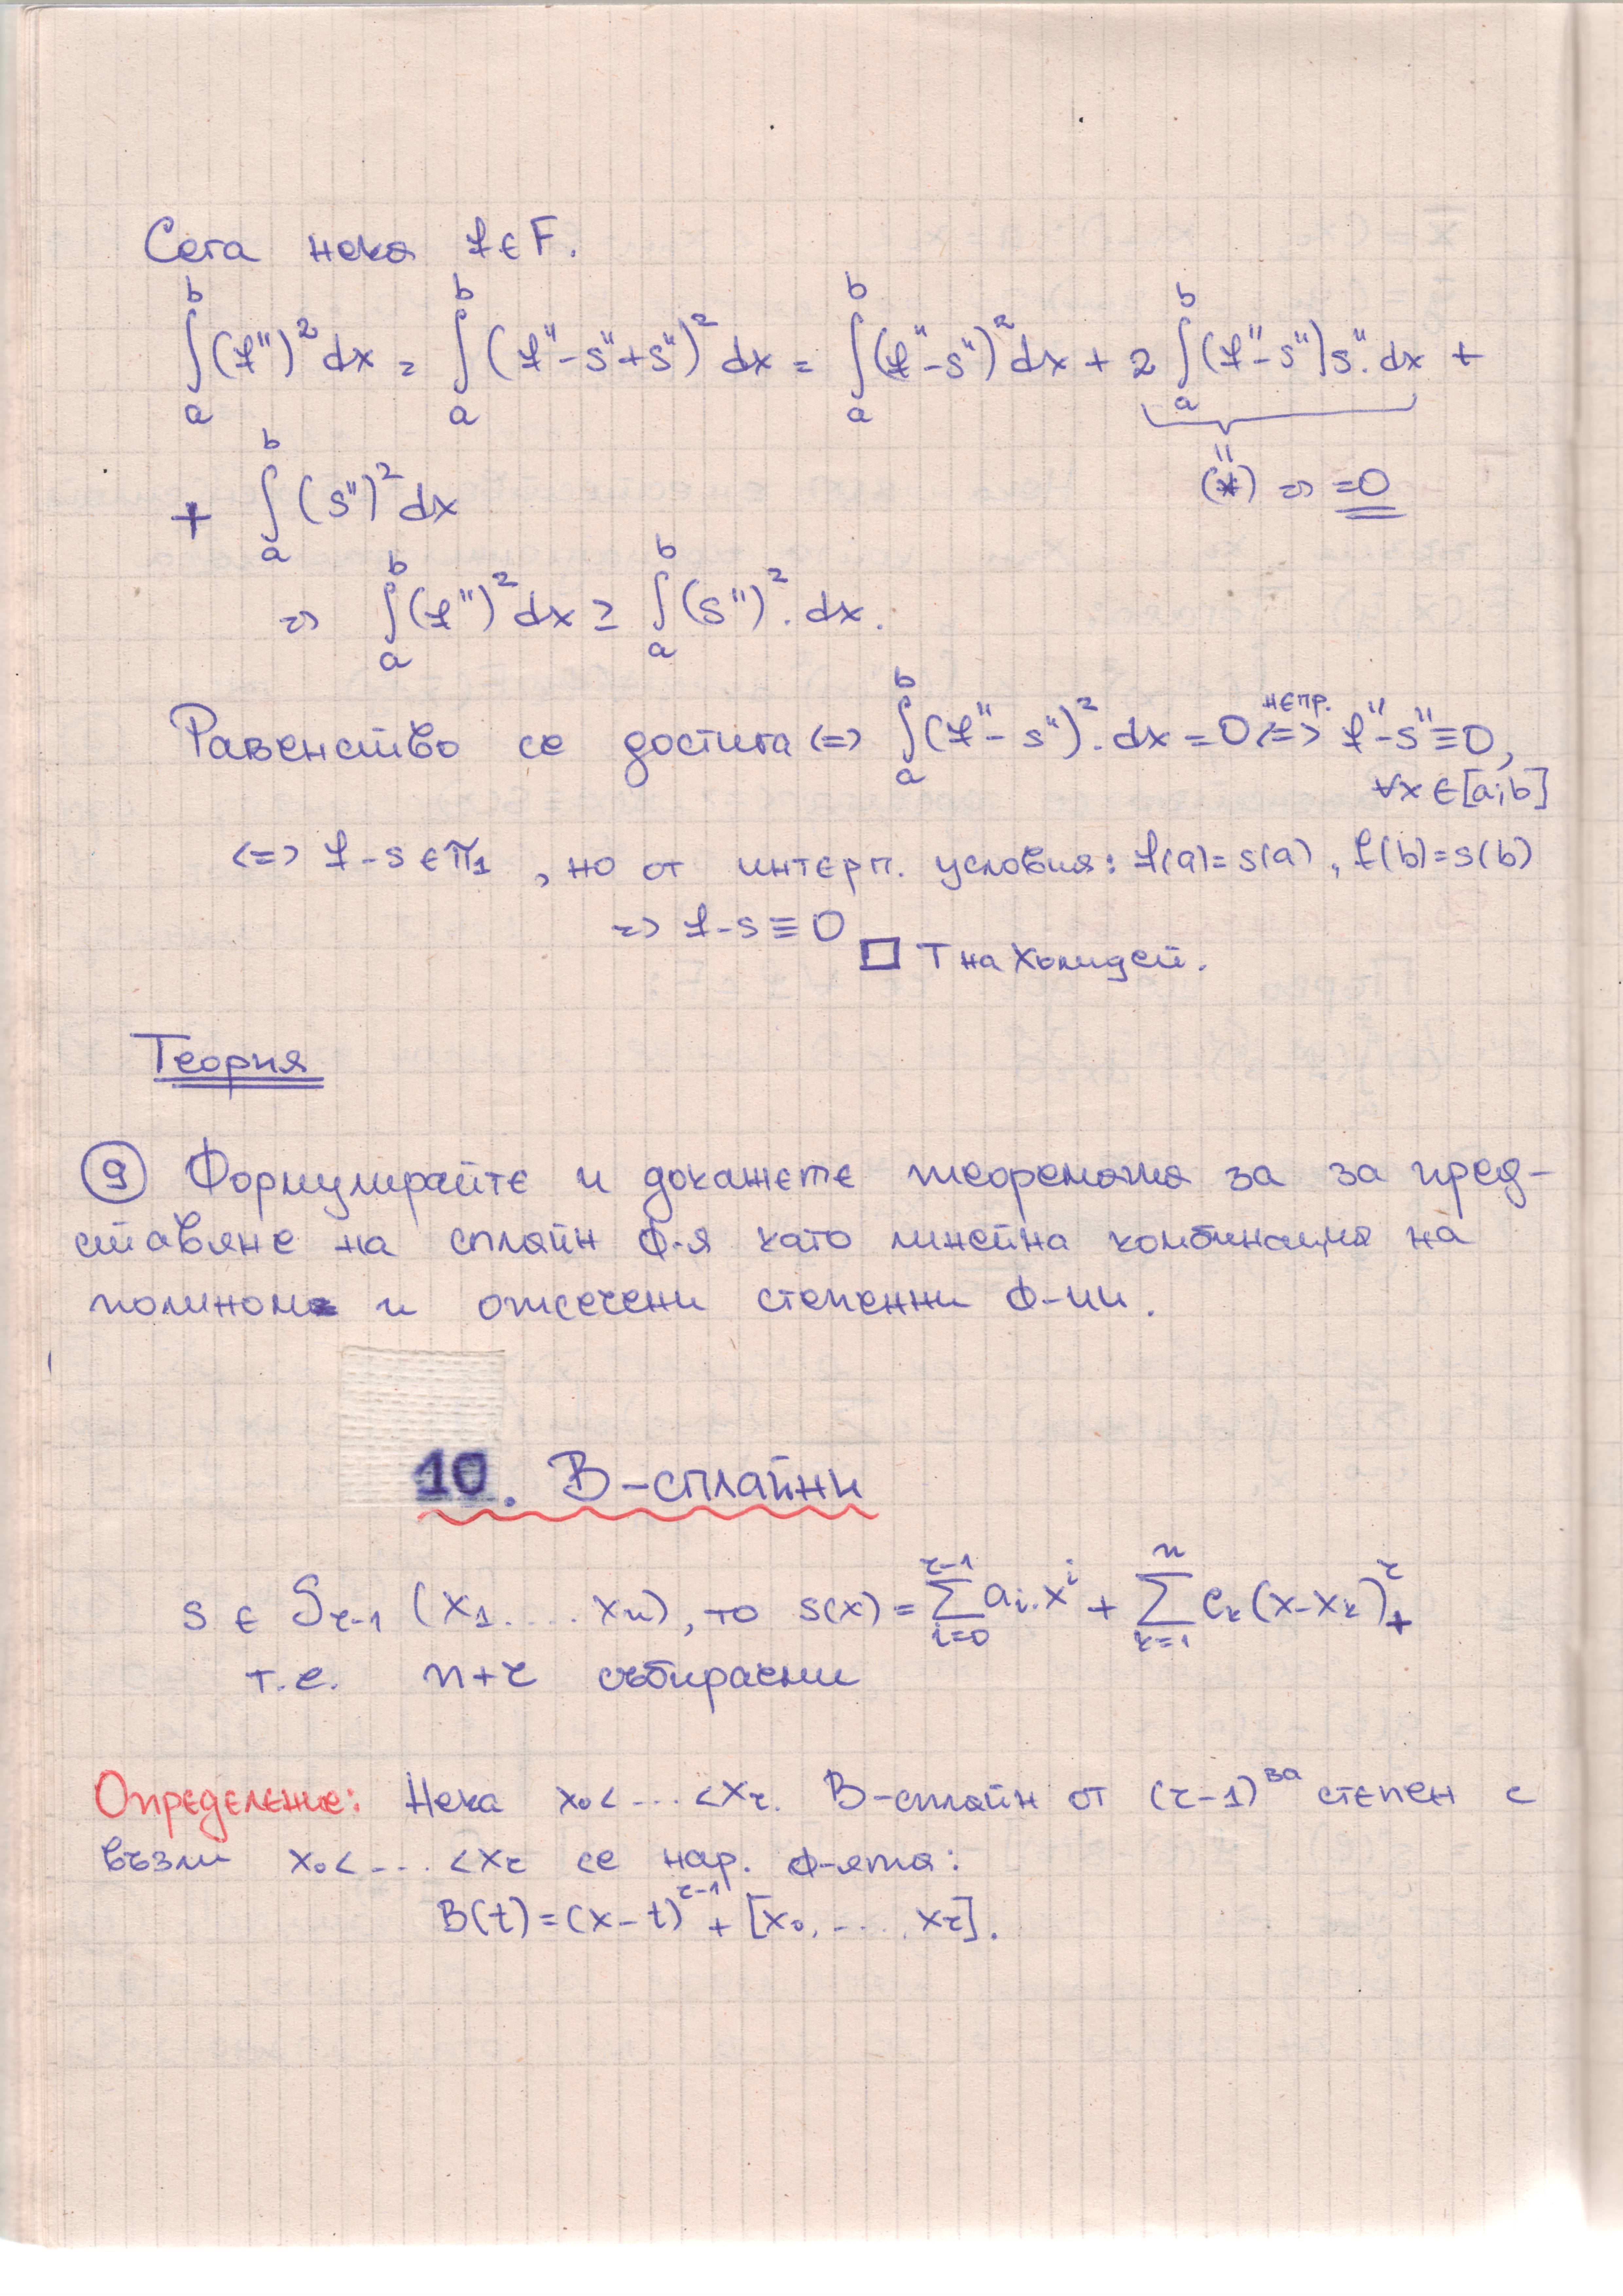 Сега нека f ∈ F.
∫_a^b (f'')² dx = ∫_a^b (f''-s''+s'')² dx = ∫_a^b (f''-s'')² dx + 2 ∫_a^b (f''-s'')s''. dx +
(*) => =0
+ ∫_a^b (s'')² dx
=> ∫_a^b (f'')² dx ≥ ∫_a^b (s'')². dx.
Равенство се достига <=> ∫_a^b (f''- s'')². dx = 0 <=> (непр.) f''-s'' ≡ 0,
∀x ∈ [a;b]
<=> f-s ∈ π₁ , но от интерп. условия: f(a)=s(a) , f(b)=s(b)
=> f-s ≡ 0
□ Т на Холидей.
Теория
⑨ Формулирайте и докажете теоремата за за пред-
ставяне на сплайн ф-я като линейна комбинация на
полином и отсечени степенни ф-ии.
10. В-сплайни
s ∈ S_{r-1} (x₁.... xₙ), то s(x) = ∑_{i=0}^{r-1} aᵢ.xⁱ + ∑_{k=1}^{n} c_k (x-x_k)₊^r
т.е. n+r събираеми
Определение: Нека x₀< ... <x_r. В-сплайн от (r-1)^ва степен с
възли x₀< ... <x_r се нар. ф-ята:
B(t)=(x-t)₊^{r-1} [x₀, .... x_r].